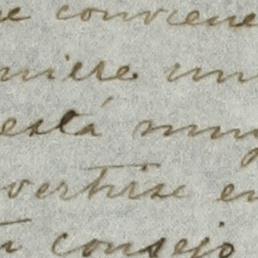 e conviene
niere un
está muy
vertirse en
consejo